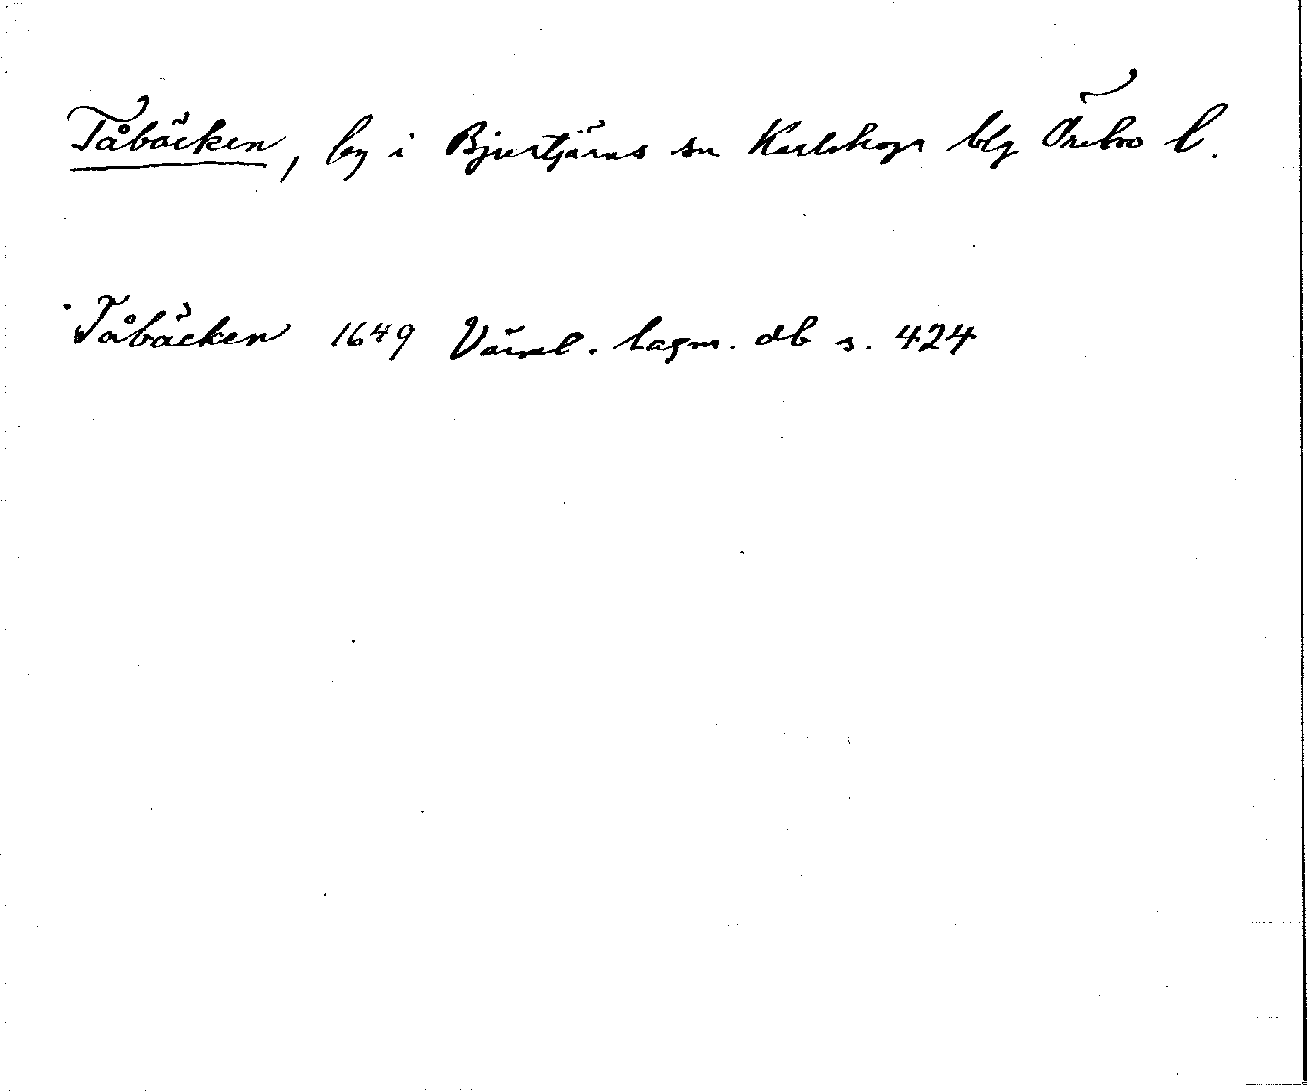 Tåbäcken, by i Bjurtjärns sn Karlskoga blg Örebro l.
Tåbäcken 1649 Värml. lagm. db s. 424